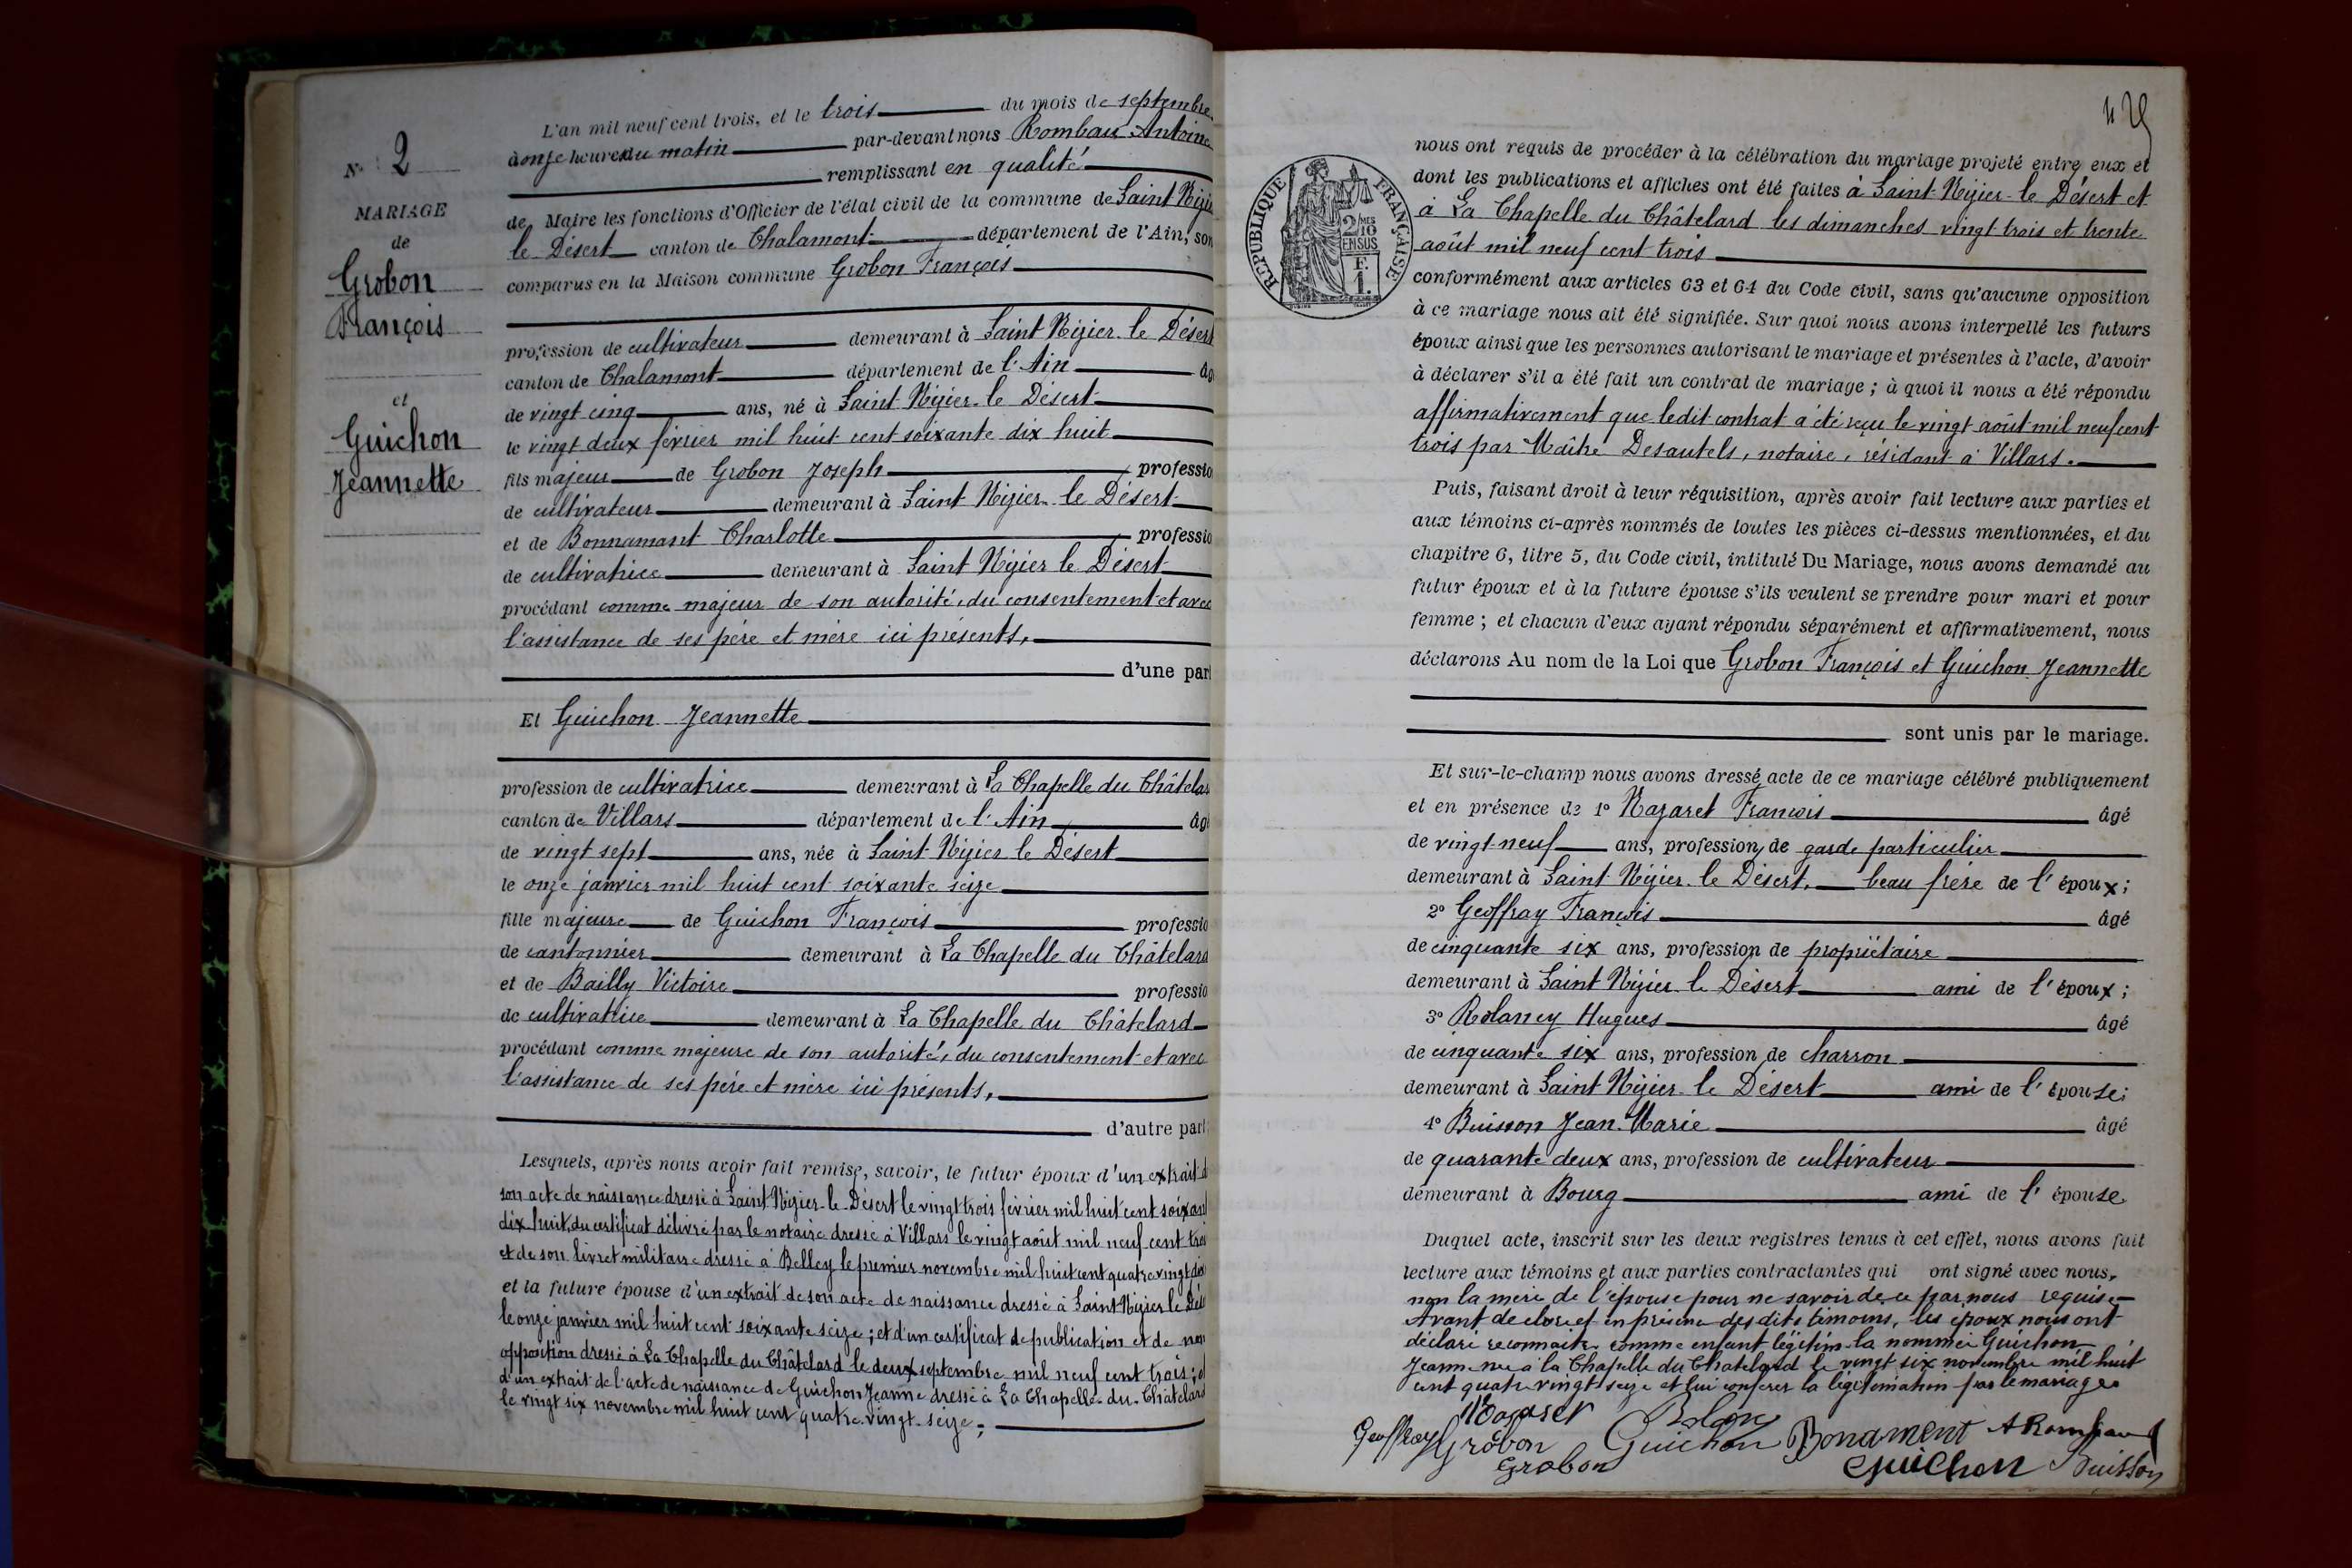 N° 2
MARIAGE
de
Grobon
François
et
Guichon
Jeannette
L'an mil neuf cent trois, et le trois du mois de septembre
à onze heures du matin par-devant nous Rombau Antoine
remplissant en qualité
de Maire les fonctions d'Officier de l'état civil de la commune de Saint Nizie
le Désert canton de Chalamont département de l'Ain, son
comparus en la Maison commune Grobon François
profession de cultivateur demeurant à Saint Nizier le Désert
canton de Chalamont département de l'Ain âg
de vingt cinq ans, né à Saint Nizier le Désert
le vingt deux février mil huit cent soixante dix huit
fils majeur de Grobon Joseph professio
de cultivateur demeurant à Saint Nizier le Désert
et de Bonnamant Charlotte professio
de cultivatrice demeurant à Saint Nizier le Désert
procédant comme majeur de son autorité, du consentement et avec
l'assistance de ses père et mère ici présents,
d'une part
Et Guichon Jeannette
profession de cultivatrice demeurant à La Chapelle du Châtelar
canton de Villars département de l'Ain âg
de vingt sept ans, née à Saint Nizier le Désert
le onze janvier mil huit cent soixante seize
fille majeure de Guichon François professio
de cantonnier demeurant à La Chapelle du Châtelard
et de Bailly Victoire professio
de cultivatrice demeurant à La Chapelle du Châtelard
procédant comme majeure de son autorité, du consentement et avec
l'assistance de ses père et mère ici présents,
d'autre part
Lesquels, après nous avoir fait remise, savoir, le futur époux d'un extrait d
son acte de naissance dressé à Saint Nizier-le-Désert le vingt trois février mil huit cent soixan
dix huit, du certificat délivré par le notaire dressé à Villars le vingt août mil neuf cent troi
et de son livret militaire dressé à Belley le premier novembre mil huit cent quatre vingt dix
et la future épouse d'un extrait de son acte de naissance dressé à Saint Nizier le Dés
le onze janvier mil huit cent soixante seize ; et d'un certificat de publication et de non
opposition dressé à La Chapelle du Châtelard le deux septembre mil neuf cent trois ; et
d'un extrait de l'acte de naissance de Guichon Jeanne dressé à La Chapelle-du-Châtelard
le vingt six novembre mil huit cent quatre-vingt-seize ;
RÉPUBLIQUE FRANÇAISE
2/10 MES
EN SUS
F.
1.
nous ont requis de procéder à la célébration du mariage projeté entre eux et
dont les publications et affiches ont été faites à Saint-Nizier-le Désert et
à La Chapelle du Châtelard les dimanches vingt trois et trente
août mil neuf cent trois
conformément aux articles 63 et 64 du Code civil, sans qu'aucune opposition
à ce mariage nous ait été signifiée. Sur quoi nous avons interpellé les futurs
époux ainsi que les personnes autorisant le mariage et présentes à l'acte, d'avoir
à déclarer s'il a été fait un contrat de mariage ; à quoi il nous a été répondu
affirmativement que ledit contrat a été reçu le vingt août mil neuf cent
trois par Maître Desautels, notaire, résidant à Villars.
Puis, faisant droit à leur réquisition, après avoir fait lecture aux parties et
aux témoins ci-après nommés de toutes les pièces ci-dessus mentionnées, et du
chapitre 6, titre 5, du Code civil, intitulé Du Mariage, nous avons demandé au
futur époux et à la future épouse s'ils veulent se prendre pour mari et pour
femme ; et chacun d'eux ayant répondu séparément et affirmativement, nous
déclarons Au nom de la Loi que Grobon François et Guichon Jeannette
sont unis par le mariage.
Et sur-le-champ nous avons dressé acte de ce mariage célébré publiquement
et en présence de 1° Nazaret François âgé
de vingt-neuf ans, profession de garde particulier
demeurant à Saint Nizier le Désert, beau frère de l'époux ;
2° Geoffray François âgé
de cinquante six ans, profession de propriétaire
demeurant à Saint Nizier le Désert ami de l'époux ;
3° Rolancy Hugues âgé
de cinquante six ans, profession de charron
demeurant à Saint Nizier le Désert ami de l'épouse ;
4° Buisson Jean-Marie âgé
de quarante deux ans, profession de cultivateur
demeurant à Bourg ami de l'épouse
Duquel acte, inscrit sur les deux registres tenus à cet effet, nous avons fait
lecture aux témoins et aux parties contractantes qui ont signé avec nous,
non la mère de l'épouse pour ne savoir de ce par nous requise
Avant de clore et en présence desdits témoins, les époux nous ont
déclaré reconnaître comme enfant légitime la nommée Guichon
Jeanne née à la Chapelle du Chatelard le vingt six novembre mil huit
cent quatre vingt seize et lui conférer la légitimation par le mariage
Nazaret
Geoffray Grobon Guichon Bonament A Rombaud
Grobon Guichon Buisson